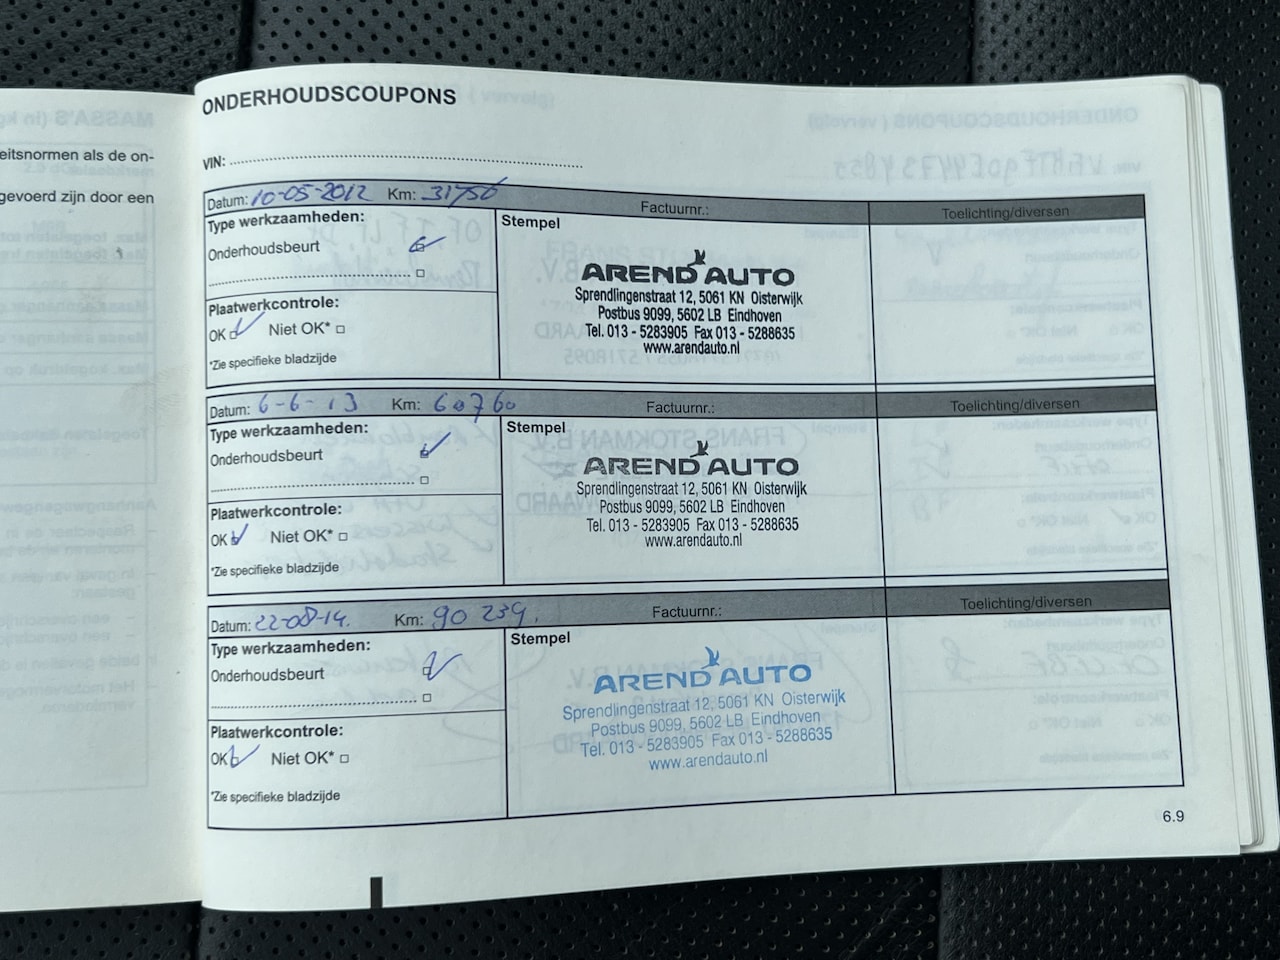 eitsnormen als de on-
gevoerd zijn door een
ONDERHOUDSCOUPONS
VIN:
Datum: 10-05-2012 Km: 31756 Factuurnr.: Toelichting/diversen
Type werkzaamheden:
Stempel
Onderhoudsbeurt
Plaatwerkcontrole:
OK Niet OK*
*Zie specifieke bladzijde
AREND AUTO
Sprendlingenstraat 12, 5061 KN Oisterwijk
Postbus 9099, 5602 LB Eindhoven
Tel. 013 - 5283905 Fax 013 - 5288635
www.arendauto.nl
Datum: 6-6-13 Km: 60760 Factuurnr.: Toelichting/diversen
Type werkzaamheden:
Stempel
Onderhoudsbeurt
Plaatwerkcontrole:
OK Niet OK*
*Zie specifieke bladzijde
AREND AUTO
Sprendlingenstraat 12, 5061 KN Oisterwijk
Postbus 9099, 5602 LB Eindhoven
Tel. 013 - 5283905 Fax 013 - 5288635
www.arendauto.nl
Datum: 22-08-14. Km: 90 239. Factuurnr.: Toelichting/diversen
Type werkzaamheden:
Stempel
Onderhoudsbeurt
Plaatwerkcontrole:
OK Niet OK*
*Zie specifieke bladzijde
AREND AUTO
Sprendlingenstraat 12, 5061 KN Oisterwijk
Postbus 9099, 5602 LB Eindhoven
Tel. 013 - 5283905 Fax 013 - 5288635
www.arendauto.nl
6.9